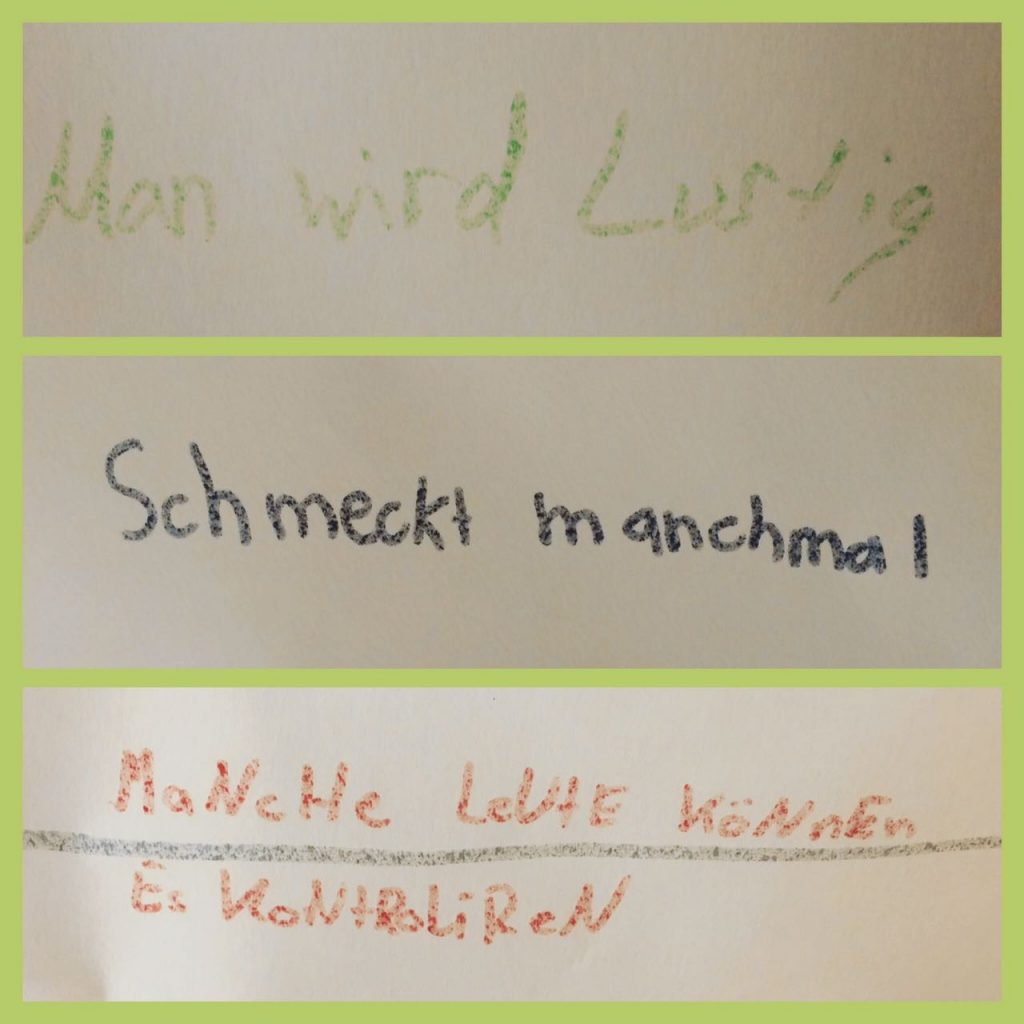 Man wird Lustig
Schmeckt manchmal
MaNcHe LeUtE KöNnEn
Es KoNtRoLiReN